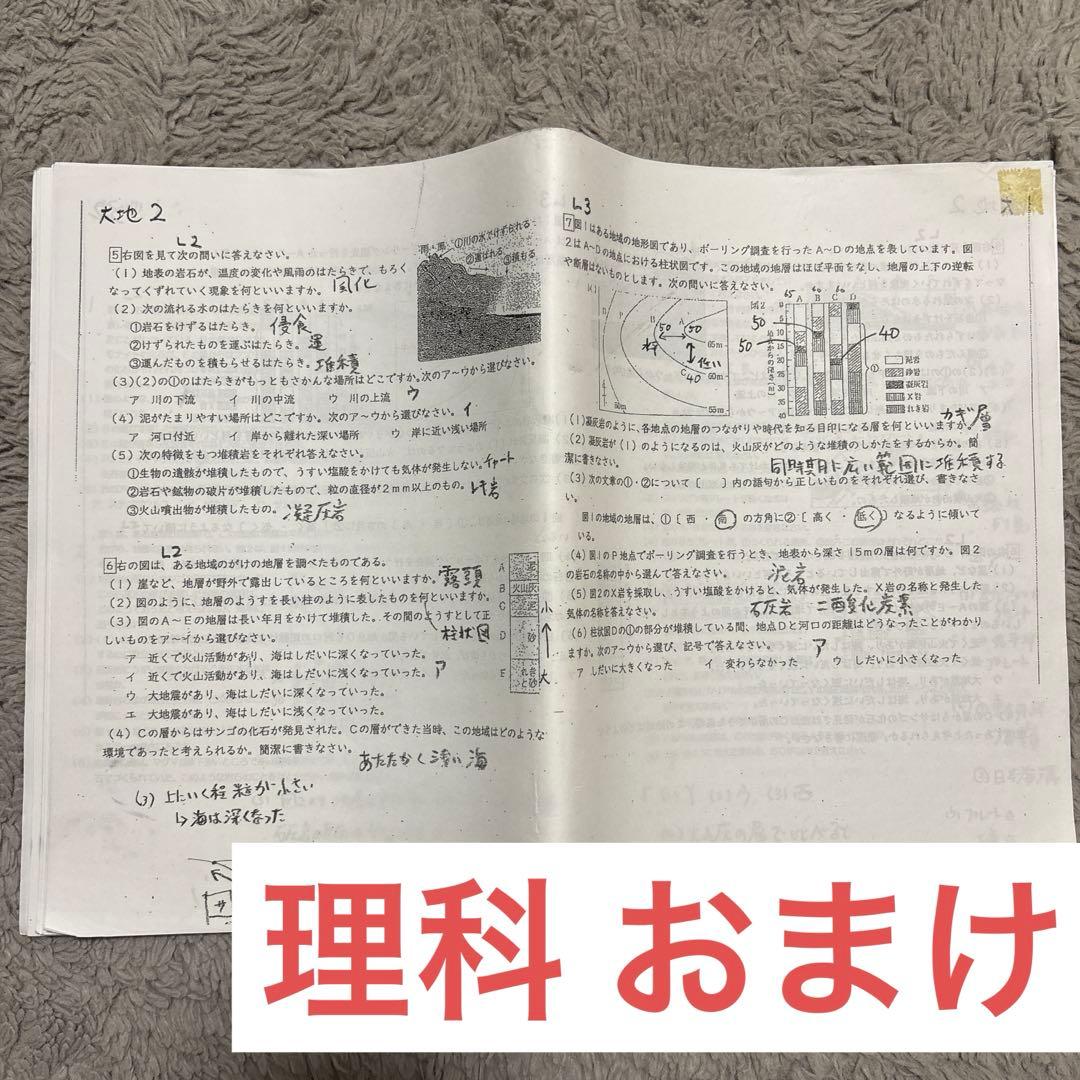 大地2
L2
5 右図を見て次の問いに答えなさい。
(1)地表の岩石が、温度の変化や風雨のはたらきで、もろく
なってくずれていく現象を何といいますか。 風化
(2)次の流れる水のはたらきを何といいますか。
①岩石をけずるはたらき。 侵食
②けずられたものを運ぶはたらき。 運
③運んだものを積もらせるはたらき。 堆積
(3)(2)の①のはたらきがもっともさかんな場所はどこですか。次のア〜ウから選びなさい。
ア 川の下流 イ 川の中流 ウ 川の上流 ウ
(4)泥がたまりやすい場所はどこですか。次のア〜ウから選びなさい。 イ
ア 河口付近 イ 岸から離れた深い場所 ウ 岸に近い浅い場所
(5)次の特徴をもつ堆積岩をそれぞれ答えなさい。
①生物の遺骸が堆積したもので、うすい塩酸をかけても気体が発生しない。 チャート
②岩石や鉱物の破片が堆積したもので、粒の直径が2mm以上のもの。 レキ岩
③火山噴出物が堆積したもの。 凝灰岩
①川の水でけずられる
②運ばれる
③積もる
L2
6 右の図は、ある地域のがけの地層を調べたものである。
(1)崖など、地層が野外で露出しているところを何といいますか。 露頭
(2)図のように、地層のようすを長い柱のように表したものを何といいますか。
柱状図
(3)図のA〜Eの地層は長い年月をかけて堆積した。その間のようすとして正
しいものをア〜エから選びなさい。
ア 近くで火山活動があり、海はしだいに深くなっていった。
イ 近くで火山活動があり、海はしだいに浅くなっていった。 ア
ウ 大地震があり、海はしだいに深くなっていった。
エ 大地震があり、海はしだいに浅くなっていった。
(4)Cの層からはサンゴの化石が発見された。Cの層ができた当時、この地域はどのような
環境であったと考えられるか。簡潔に書きなさい。
あたたかく浅い海
A 泥
B 火山灰
C 泥
D 砂
E れきと砂
小
大
(3) 上にいく程粒が小さい
↳海は深くなった
サ
L3
7 図1はある地域の地形図であり、ボーリング調査を行ったA〜Dの地点を表しています。図
2はA〜Dの地点における柱状図です。この地域の地層はほぼ平面をなし、地層の上下の逆転
や断層はないものとします。次の問いに答えなさい。
B A
50 50
低い
C 40
65m
60m
55m
50m
図2
65 60 60
A B C D
50
50
40
地表からの深さ(m)
0
5
10
15
20
25
30
35
40
①
泥岩
砂岩
凝灰岩
X岩
れき岩
(1)凝灰岩のように、各地点の地層のつながりや時代を知る目印になる層を何といいますか。 カギ層
(2)凝灰岩が(1)のようになるのは、火山灰がどのような堆積のしかたをするからか。簡
潔に書きなさい。 同時期に広い範囲に堆積する
(3)次の文章の①・②について〔 〕内の語句から正しいものをそれぞれ選び、書きなさ
い。
図1の地域の地層は、①〔西・南〕の方角に②〔高く・低く〕なるように傾いて
いる。
(4)図1のP地点でボーリング調査を行うとき、地表から深さ15mの層は何ですか。図2
の岩石の名称の中から選んで答えなさい。 泥岩
(5)図2のX岩を採取し、うすい塩酸をかけると、気体が発生した。X岩の名称と発生した
気体の名称を答えなさい。 石灰岩 二酸化炭素
(6)柱状図Dの①の部分が堆積している間、地点Dと河口の距離はどうなったことがわかり
ますか。次のア〜ウから選び、記号で答えなさい。 ア
ア しだいに大きくなった イ 変わらなかった ウ しだいに小さくなった
理科 おまけ